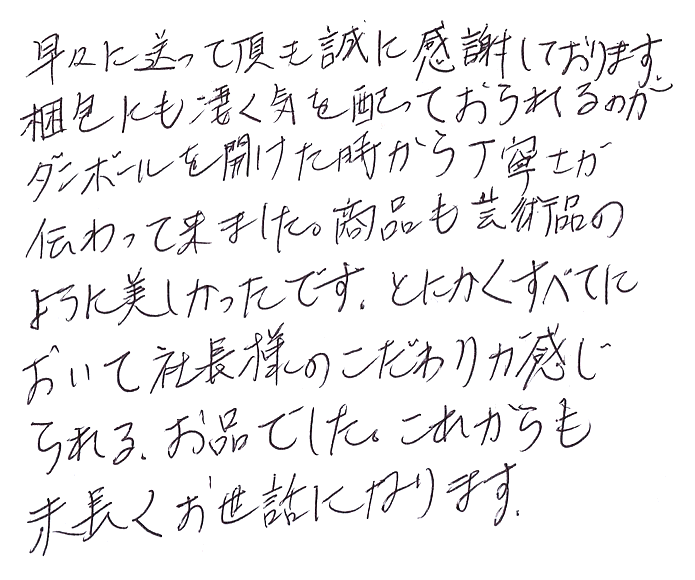 早々に送って頂き誠に感謝しております。
梱包にも凄く気を配っておられるのが
ダンボールを開けた時から丁寧さが
伝わって来ました。商品も芸術品の
ように美しかったです。とにかくすべてに
おいて社長様のこだわりが感じ
られる、お品でした。これからも
末長くお世話になります。